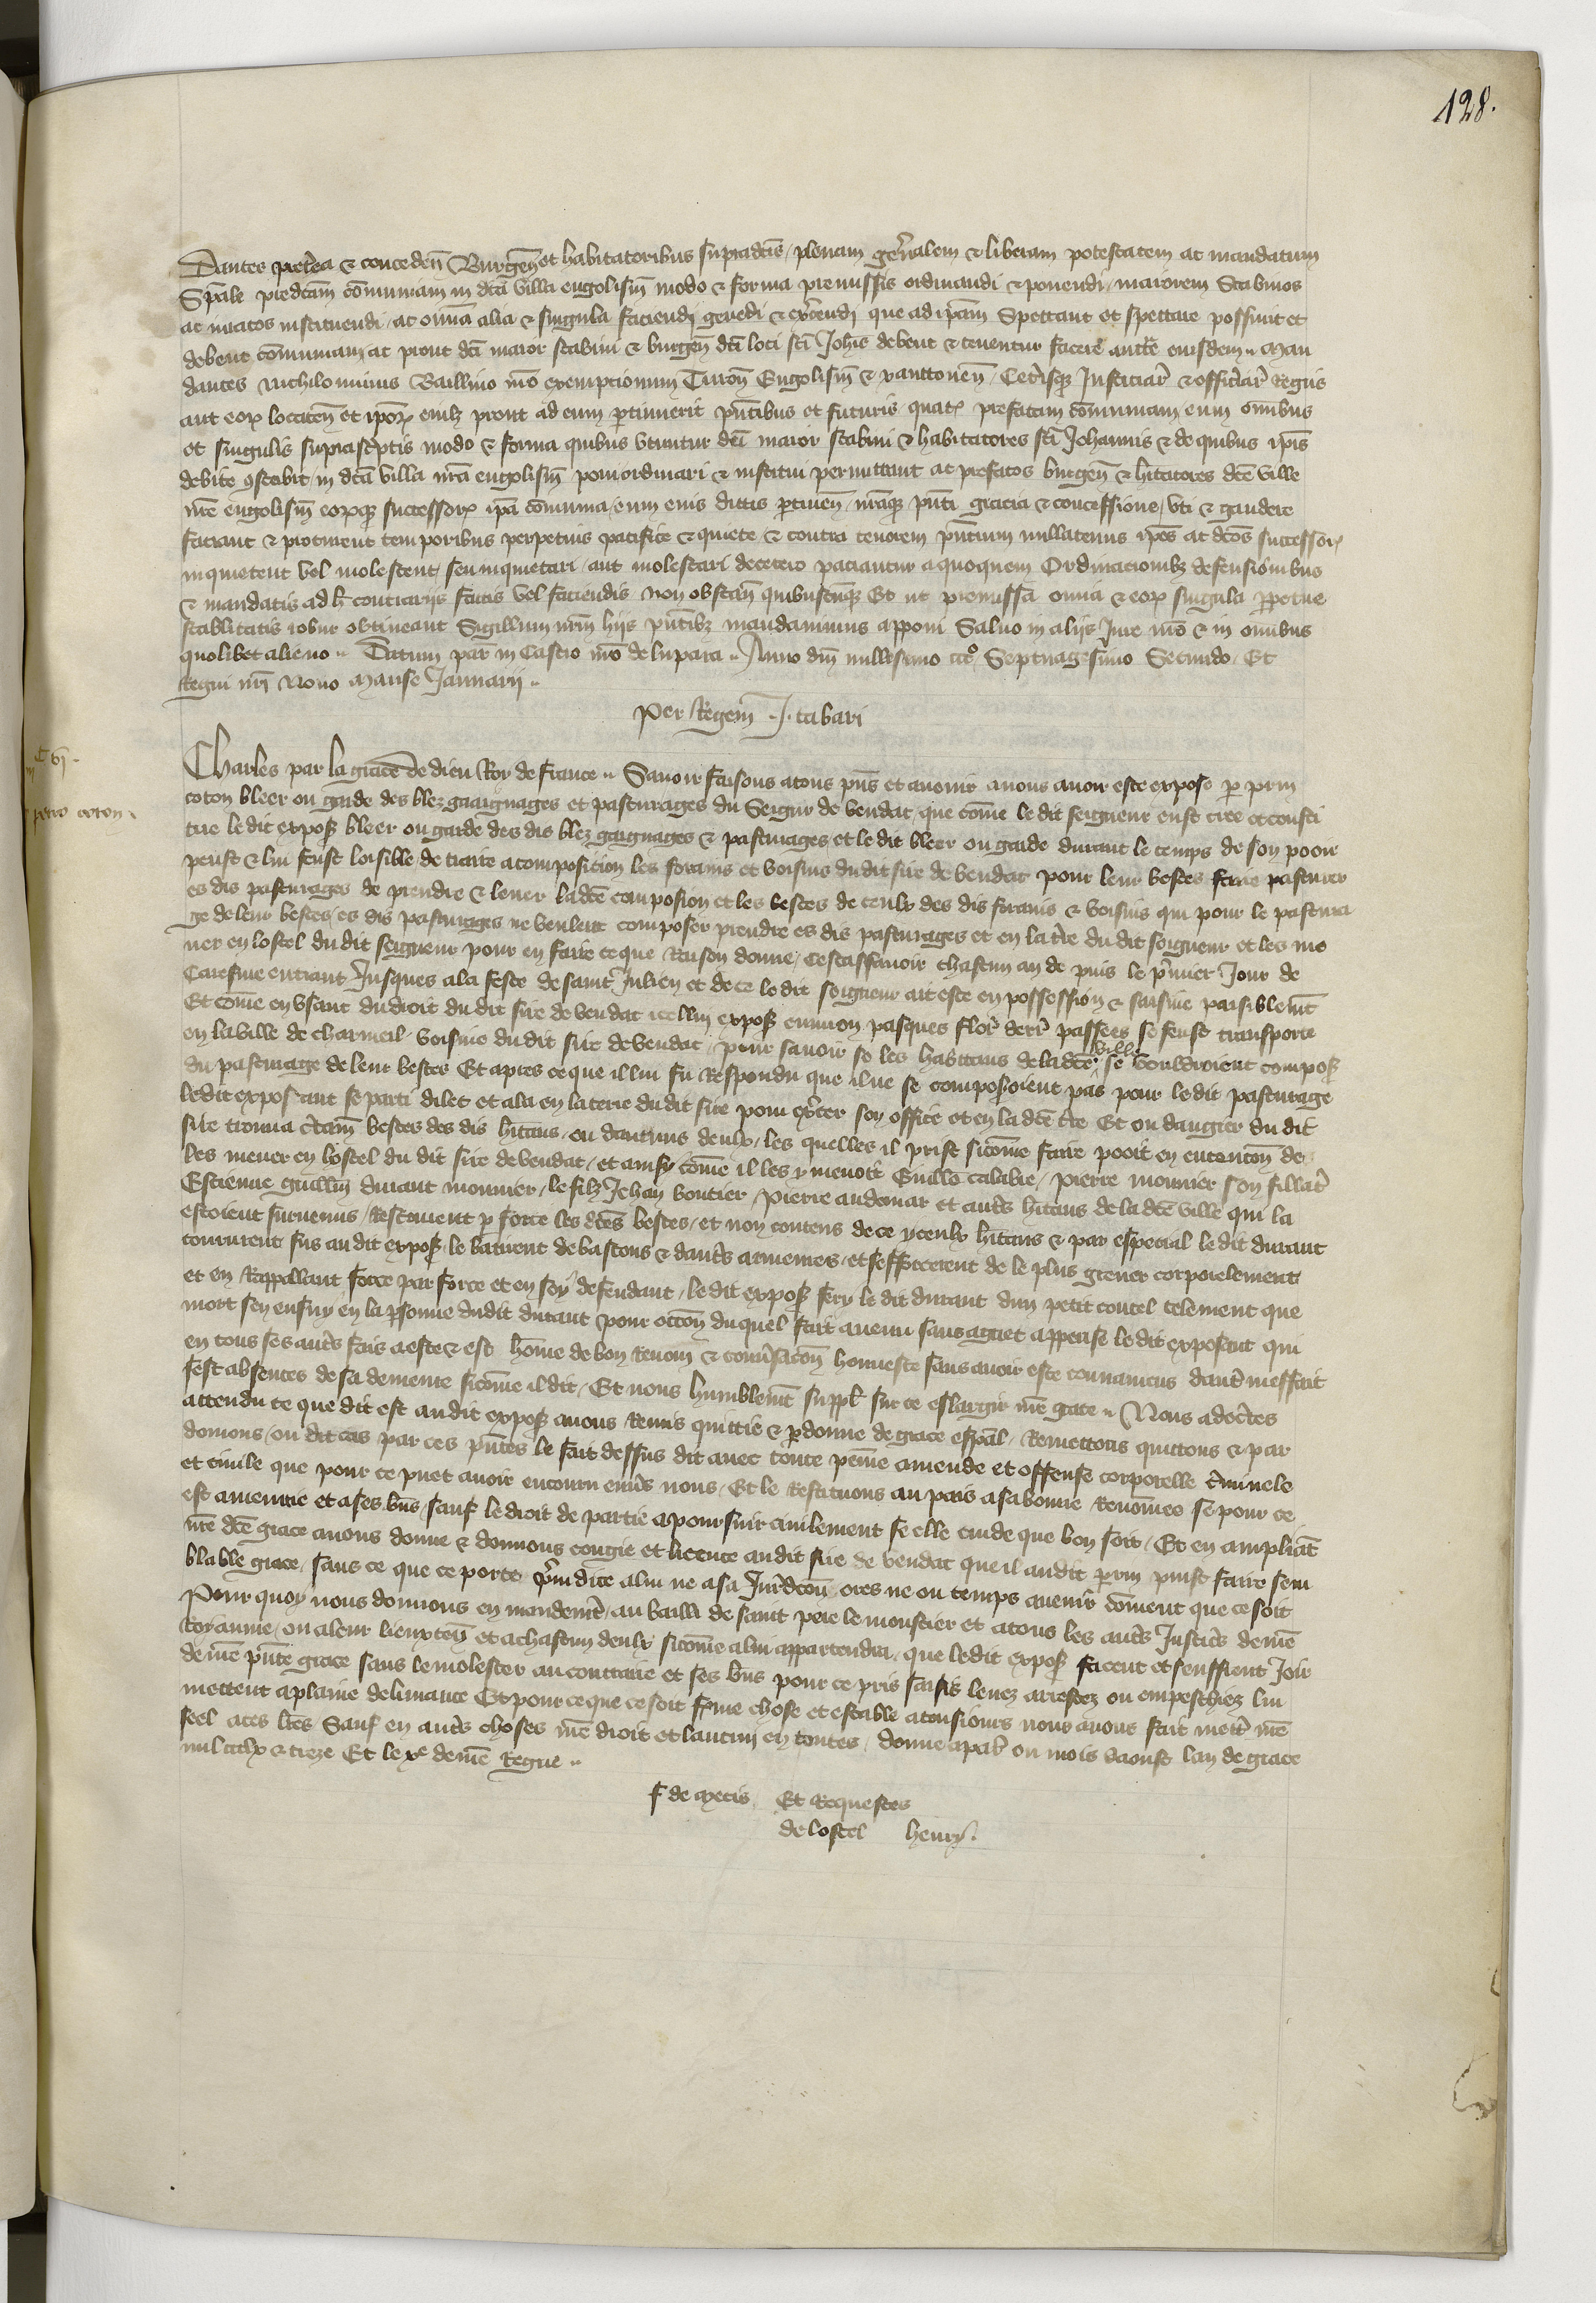 128.
Dantes pret̃ea & conceden̄ Burgen̄ et habitatoribus supradc̃is, plenam gen̄alem & liberam potestatem ac mandatum
Sp̃ale predc̃am cõmuniam in dc̃a villa engolism̄ modo & forma premissis ordinandi & ponendi, maiorem Scabinos
ac iuratos instituendi, ac om̃ia alia & singula faciendi gerendi & exc̃endi que ad ip̃am Spectant et spectare possunt et
debent cõmuniam, ac prout dc̃i maior scabini & burgen̄ dc̃i loci sc̃i Joh̃is debent & tenentur facere auct̃e eiusdem. Man
dantes Nichilominus Baillivo nr̃o exemptionum Turon̄ Engolism̄ & xanttonen̄, Ceter̃isq̃ Justiciar̃ & officiar̃ Regiis
aut eorꝝ locaten̄ et ip̃orꝝ cuilꝫ prout ad eum ꝑtinuerit pñtibus et futuris quatꝰ prefatam cõmuniam cum om̃ibus
et singulis suprasc̃ptis modo & forma quibus utuntur dc̃i maior scabini & habitatores sc̃i Johannis & de quibus ip̃is
debite ꝯstabit, in dc̃a villa nr̃a engolism̄ poni ordinari & institui permittant ac prefatos burgen̄ & hitatores dc̃e ville
nr̃e engolism̄ eorꝝq̃ successorꝝ ip̃a cõmunia, cum eius dictis ꝑtinen̄, nr̃aq̃ pñti gracia & concessione, uti & gaudere
faciant & procurent temporibus perpetuis pacifice & quiete, & contra tenorem pñtium nullatenus ip̃os ac dc̃os successorꝝ
inquietent vel molestent, seu inquietari, aut molestari decetero paciantur a quoquam Ordinacionibꝫ defensionibus
& mandatis ad h̃ contrariis factis vel faciendis, non obstan̄ quibuscũq̃ Et ut premissa om̃ia & eorꝝ singula ꝑpetue
stabilitatis robur obtineant Sigillum nr̃m hiis pñtibꝫ mandavimus apponi Salvo in aliis Jure nr̃o & in om̃ibus
quolibet alieno. Datum par̃ in Castro nr̃o de lupara. Anno dñi millesimo cccº Septuagesimo Secundo, Et
Regni nr̃i Nono Mense Januarii.
Per Regem J. tabari
C vj.
petro coton
Charles par la grace de dieu Roy de france. Savoir faisons a tous p̃ns et avenir, a nous avoir este expose ꝑ prin
coton bleer ou garde des blez gaaignages et pasturages du Seignr de vendat, que cõme le dit seigneur eust cree et consti
tue le dit exposꝫ bleer ou garde des dis blez gaignages & pasturages, et le dit bleer ou garde durant le temps de son pooir
peust & lui feust loisible de traire a composition les forains et voisins du dit sire de vendat pour leur bestes faire pasturer
es dis pasturages de prendre & lever ladc̃e composion et les bestes de ceulx des dis forains & voisins qui pour le pastura
ge de leur bestes, es dis pasturages ne veulent composer prendre es dis pasturages et en la tr̃e du dit seigneur et les me
ner en lostel du dit seigneur pour en faire ce que Raison donne, cestassavoir chascun an de puis le pr̃mier Jour de
Caresme entrant Jusques a la feste de saint Julien et de ce le dit seigneur ait este en possession & saisine paisiblemt̃
Et cõme en usant du droit du dit sire de vendat icellui exposꝫ environ pasques flor̃ derr̃ passees se feust transporte
en la ville de charmeil, voisine du dit sire de vendat, pour savoir se les habitans de ladc̃e ville se vouldroient composꝫ
du pasturage de leur bestes Et apres ce que il lui fu Respondu que il ne se composoient pas pour le dit pasturage
ledit exposant se parti dilec et ala en la terre du dit sire pour ex̃cer son office et en la dc̃e tr̃e Et ou dangier du dit
sire trouva c̃tain̄ bestes des dis hitans, ou daucuns deulx, les quelles il prist sicõme faire pooit en entencõn de
les mener en lostel du dit sire de vendat, et ainsy cõme il les y menoit Guillõ calabre, Pierre mounier son fillatr̃
Estienne guillm̄ durant mounier, le filz Jehan boutier, Pierre audemar et autr̃s hitans de la dc̃e ville qui la
estoient survenus, Rescouirent ꝑ force les dc̃es bestes, et non contens de ce yceulx hitans & par especial le dit durant
coururent sus au dit exposꝫ, le batirent de bastons & dautr̃s armeures, et sefforcerent de le plus grever corporelement
et en Rappellant force par force et en soy defendant, le dit exposꝫ fery le dit durant dun petit coutel telement que
mort sen ensuy en la ꝑsonne dudit durant Pour occõn du quel fait avenu sans aguet appense le dit exposant qui
en tous ses autr̃s fais a este & est hõme de bon Renom & conũsacõn honneste sans avoir este convaincus dautr̃ meffait
sest absentes de sa demeure sicõme il dit, Et nous humblemt̃ suppl̃ sur ce eslargir nr̃e grace. Nous adec̃tes
attendu ce que dit est au dit exposꝫ avons Remis quittie & ꝑdonne de grace esp̃al, Remettons quittons & par
donnons, ou dit cas par ces pñtes le fait dessus dit avec toute peine amende et offense corporelle c̃iminele
et civile que pour ce puet avoir encouru env̄s nous, Et le Restituons au pais a sa bonne Renõmee se pour ce
est amenrie et a ses bñs, sauf le droit de partie a poursuir civilement se elle cuide que bon soit, Et en ampliãt
nr̃e dc̃e grace avons donne & donnons congie et licence au dit sire de vendat que il au dit perrin puist faire sem
blable grace, sans ce que ce porte p̃iudice a lui ne a sa Jur̃dicõn, ores ne ou temps avenir cõment que ce soit.
Pour quoy nous donnons en mandemt̃, au bailli de saint pere le moustier et a tous les autr̃s Justic̃s de nr̃e
Royaume, ou a leur lieuxten̄ et a chascun deulx sicõme a lui appartendra, que ledit exposꝫ facent et seuffrent Joir
de nr̃e pñte grace sans le molester au contraire et ses bñs pour ce pris saisis levez arrestez ou empeschiez lui
mettent a plaine delivrance Et pour ce que ce soit ferme chose et estable a tousiours nous avons fait mettr̃ nr̃e
seel a ces lr̃es Sauf en autr̃s choses nr̃e droit et lautrui en toutes, donne a par̃ ou mois daoust lan de grace
mil ccclx & treze Et le xe de nr̃e Regne.
f de metis Et Requestes
de lostel henry.